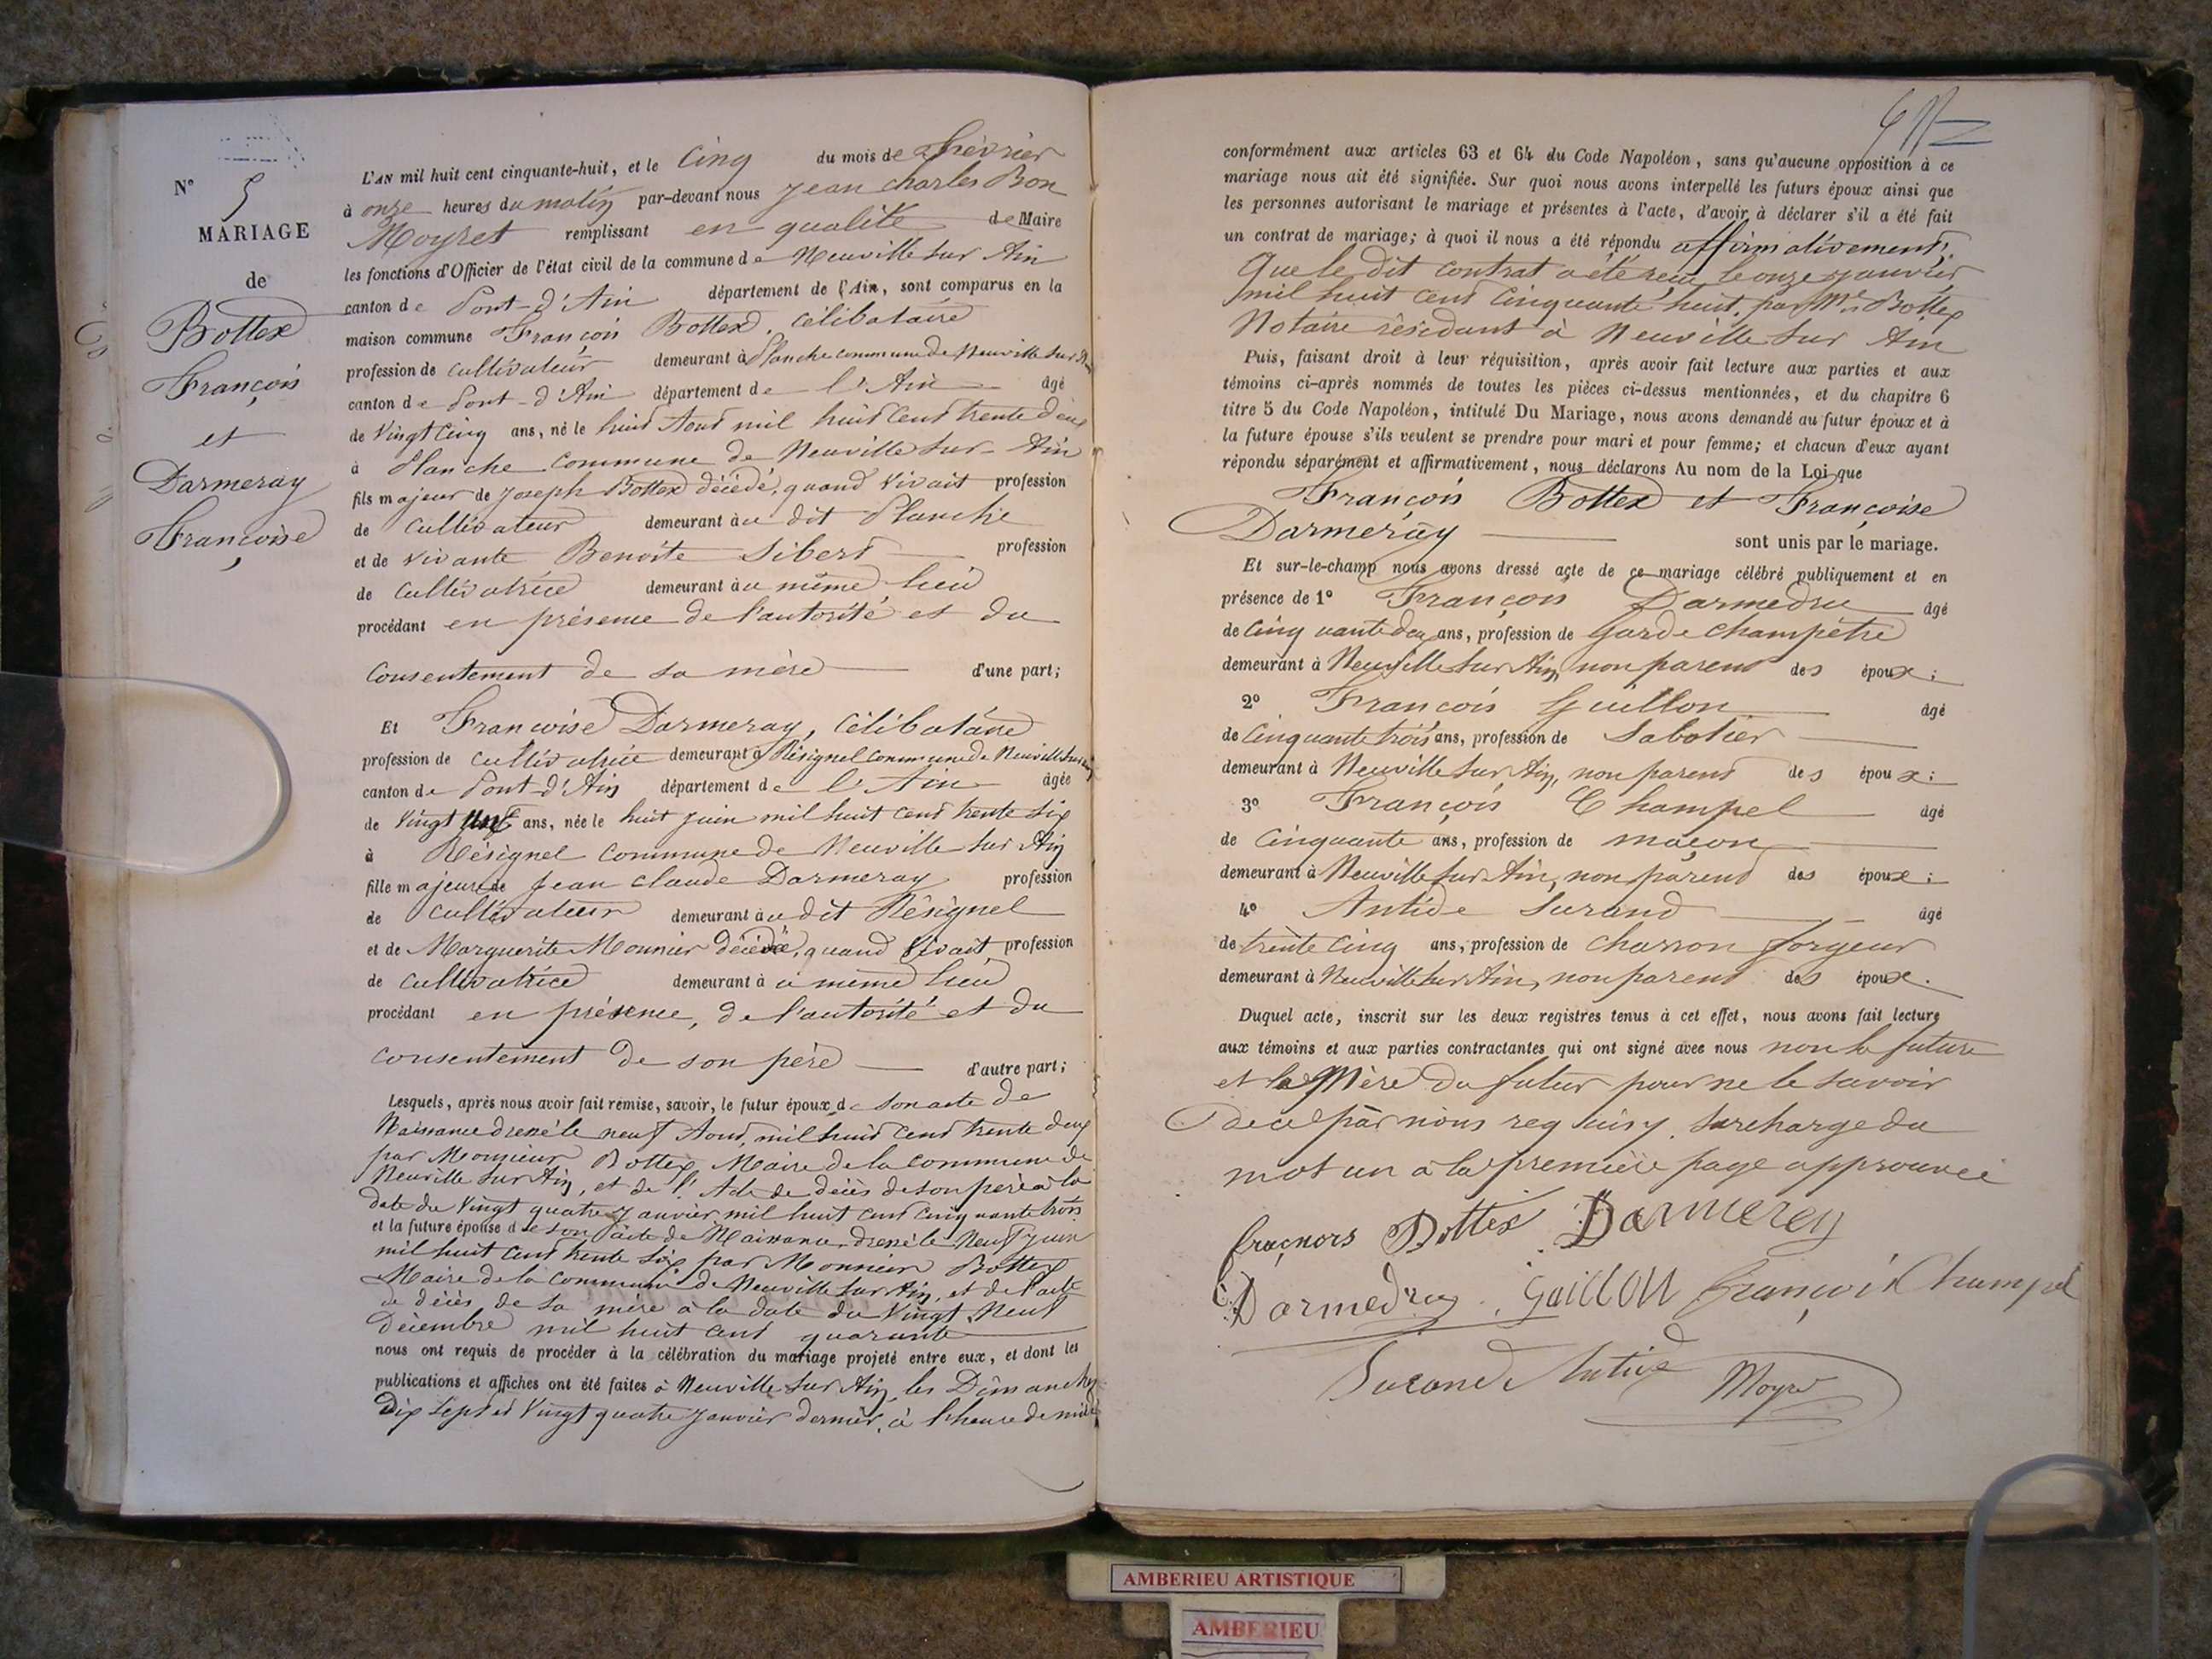 N° 5
MARIAGE
de
Bottex
François
et
Darmeray
Françoise
L'AN mil huit cent cinquante-huit, et le Cinq du mois de Février
à onze heures du matin par-devant nous Jean Charles Bon
Moyret remplissant en qualité de Maire
les fonctions d'Officier de l'état civil de la commune de Neuville sur Ain
canton de Pont-d'Ain département de l'Ain, sont comparus en la
maison commune François Bottex, célibataire
profession de cultivateur demeurant à Planche commune de Neuville sur Ain
canton de Pont-d'Ain département de l'Ain âgé
de Vingt Cinq ans, né le huit Aout mil huit Cent trente deux
à Planche Commune de Neuville sur-Ain
fils majeur de Joseph Bottex décédé, quand Vivait profession
de Cultivateur demeurant àu dit Planche
et de vivante Benoite Sibert profession
de Cultivatrice demeurant àu même lieu
procédant en présence de l'autorité et du
Consentement de sa mère d'une part;
Et Françoise Darmeray, Célibataire
profession de Cultivatrice demeurant à Résignel Commune de Neuville sur Ain
canton de Pont-d'Ain département de l'Ain âgée
de Vingt une ans, née le huit juin mil huit Cent trente six
à Résignel Commune de Neuville sur Ain
fille majeure de Jean Claude Darmeray profession
de Cultivateur demeurant àu dit Résignel
et de Marguerite Monnier décédé, quand Vivait profession
de Cultivatrice demeurant à u même lieu
procédant en présence, de l'autorité et du
Consentement de son père d'autre part;
Lesquels, après nous avoir fait remise, savoir, le futur époux de Son acte de
Naissance dressé le neuf Aout, mil huit Cent trente deux
par Monsieur Bottex Maire de la Commune de
Neuville sur Ain, et de l'Acte de décès de son père à la
date du Vingt quatre Janvier mil huit Cent Cinquante trois
et la future épouse de son acte de Naissance dressé le Neuf juin
mil huit Cent trente six par Monsieur Bottex
Maire de la Commune de Neuville sur Ain, et de l'acte
de décès de sa mère à la date du Vingt Neuf
Décembre mil huit Cent quarante
nous ont requis de procéder à la célébration du mariage projeté entre eux, et dont les
publications et affiches ont été faites à Neuville sur Ain les Dimanches
Dix Sept et Vingt quatre Janvier dernier, à l'heure de midi
conformément aux articles 63 et 64 du Code Napoléon, sans qu'aucune opposition à ce
mariage nous ait été signifiée. Sur quoi nous avons interpellé les futurs époux ainsi que
les personnes autorisant le mariage et présentes à l'acte, d'avoir à déclarer s'il a été fait
un contrat de mariage; à quoi il nous a été répondu affirmativement,
Que le dit Contrat a été reçu le onze janvier
mil huit Cent Cinquante huit, par Me Bottex
Notaire résidant à Neuville sur Ain
Puis, faisant droit à leur réquisition, après avoir fait lecture aux parties et aux
témoins ci-après nommés de toutes les pièces ci-dessus mentionnées, et du chapitre 6
titre 5 du Code Napoléon, intitulé Du Mariage, nous avons demandé au futur époux et à
la future épouse s'ils veulent se prendre pour mari et pour femme; et chacun d'eux ayant
répondu séparément et affirmativement, nous déclarons Au nom de la Loi que
François Bottex et Françoise
Darmeray sont unis par le mariage.
Et sur-le-champ nous avons dressé acte de ce mariage célébré publiquement et en
présence de 1° François Darmedru âgé
de Cinquante deux ans, profession de Garde Champêtre
demeurant à Neuville sur Ain, non parent des époux;
2° François Guillon âgé
de Cinquante trois ans, profession de Sabotier
demeurant à Neuville sur Ain, non parent des époux;
3° François Champel âgé
de Cinquante ans, profession de maçon
demeurant à Neuville sur Ain, non parent des époux;
4° Antide Surand âgé
de trente Cinq ans, profession de Charron forgeur
demeurant à Neuville sur Ain, non parent des époux.
Duquel acte, inscrit sur les deux registres tenus à cet effet, nous avons fait lecture
aux témoins et aux parties contractantes qui ont signé avec nous non la future
et la Mère du futur pour ne le savoir
de ce par nous requis. Surcharge du
mot un à la première page approuvée
Bottex Darmerey
Darmedru Guillon François Champel
Surand Antide Moyret
AMBERIEU ARTISTIQUE
AMBERIEU